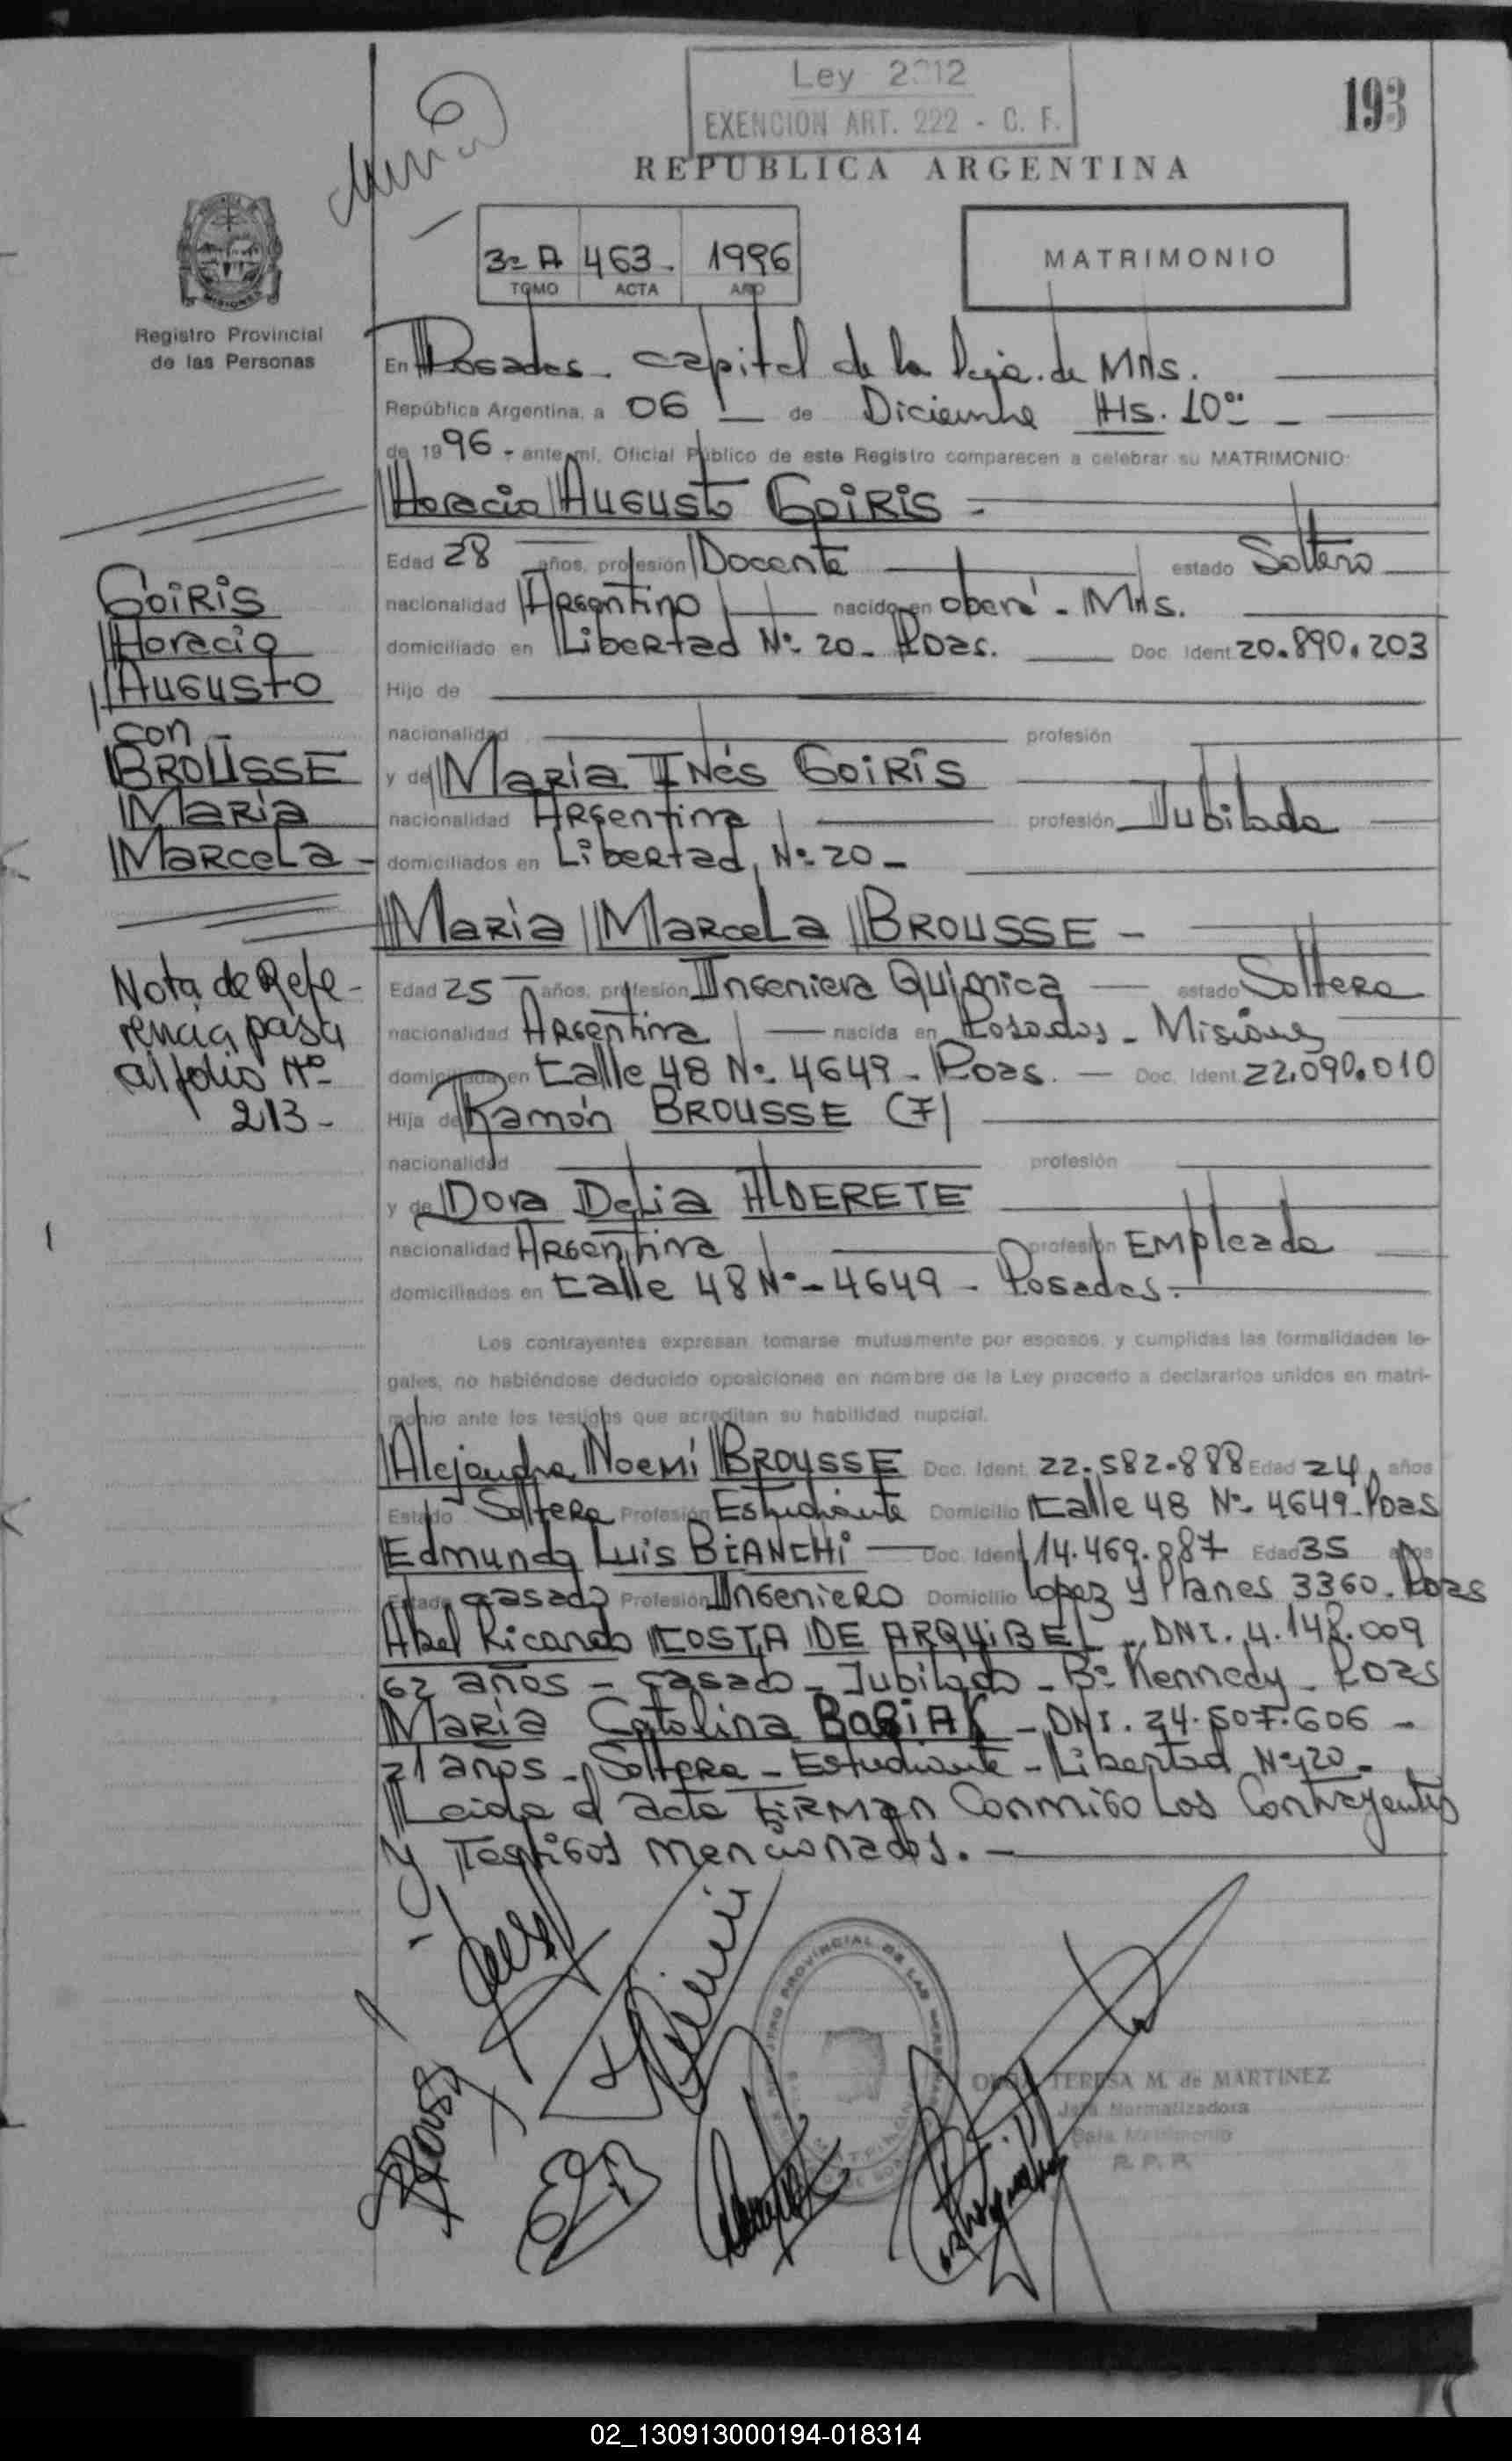 Ley 2312
EXENCION ART. 222 - C. F.
193
REPUBLICA ARGENTINA
3º A 463. 1996
TOMO ACTA AÑO
MATRIMONIO
MISIONES
Registro Provincial
de las Personas
En Posadas. capital de la Pcia. de Mns.
República Argentina, a 06 de Diciembre Hs. 10ºº
de 1996 - ante mí, Oficial Público de este Registro comparecen a celebrar su MATRIMONIO:
Horacio Augusto GOIRIS -
Edad 28 años, profesión Docente estado Soltero
nacionalidad Argentino nacido en Oberá - Mns.
domiciliado en Libertad Nº 20 - Pdas. Doc. Ident 20.890.203
Hijo de
nacionalidad profesión
y de Maria Inés GOIRIS
nacionalidad Argentina profesión Jubilada
domiciliados en Libertad Nº 20 -
GOIRIS
Horacio
Augusto
con -
BROUSSE
Maria
Marcela -
Maria Marcela BROUSSE -
Edad 25 años, profesión Ingeniera Química estado Soltera
nacionalidad Argentina nacida en Posadas - Misiones
domiciliada en Calle 48 Nº 4649 - Pdas. Doc. Ident 22.090.010
Hija de Ramón BROUSSE (F)
nacionalidad profesión
y de Dora Delia ALDERETE
nacionalidad Argentina profesión Empleada
domiciliados en Calle 48 Nº - 4649 - Posadas.
Nota de Refe-
rencia pasa
al folio Nº
213 -
Los contrayentes expresan tomarse mutuamente por esposos, y cumplidas las formalidades le-
gales, no habiéndose deducido oposiciones en nombre de la Ley procedo a declararlos unidos en matri-
monio ante los testigos que acreditan su habilidad nupcial.
Alejandra Noemí BROUSSE Doc. Ident. 22.582.888 Edad 24 años
Estado Soltera Profesión Estudiante Domicilio Calle 48 Nº 4649 - Pdas
Edmundo Luis BIANCHI Doc. Ident 14.469.887 Edad 35 años
Estado Casado Profesión Ingeniero Domicilio Lopez y Planes 3360. Pdas
Abel Ricardo COSTA DE ARQUIBEL - DNI. 4.148.009
62 años - Casado - Jubilado - Bº Kennedy - Pdas
Maria Catalina BABIAK - DNI. 24.507.606 -
21 años - Soltera - Estudiante - Libertad Nº 20 -
Leida el acta Firman Conmigo Los Contrayentes
y Testigos mencionados. -
REGISTRO PROVINCIAL DE LAS PERSONAS
TERESA M. de MARTINEZ
Jefa Normalizadora
Sala Matrimonio
R. P. P.
02_130913000194-018314